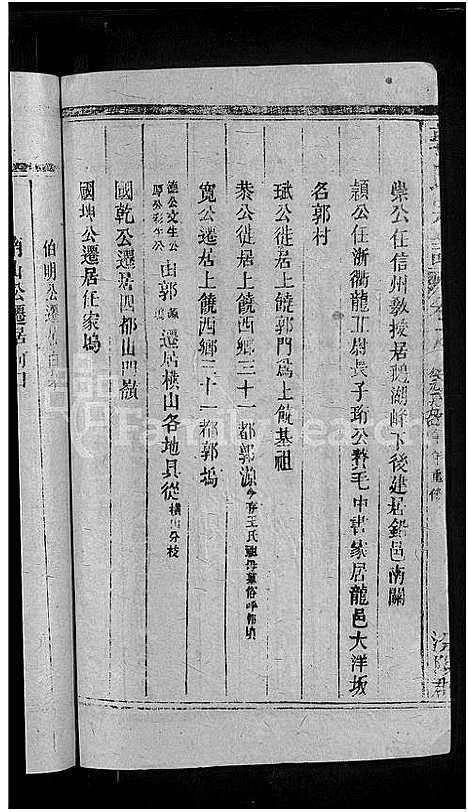 崇公任信州教授居鵝湖峰下後建居鉛邑南關
穎公任浙衢龍丘尉長子珩公贅毛中書家居龍邑大洋坂
名郭村
珷公徙居上饒郭門爲上饒基祖
恭公徙居上饒西鄉三十一都郭源今存王氏祖母墓俗呼郭墳
寬公遷居上饒西鄉三十一都郭塢
德公文生公
厚公彩生公由郭源塢遷居橫山各地具從橫山分枝
國乾公遷居四都山門嶺
國坤公遷居任家塢
伯明公遷居
南山公遷居河口
FamilySearch